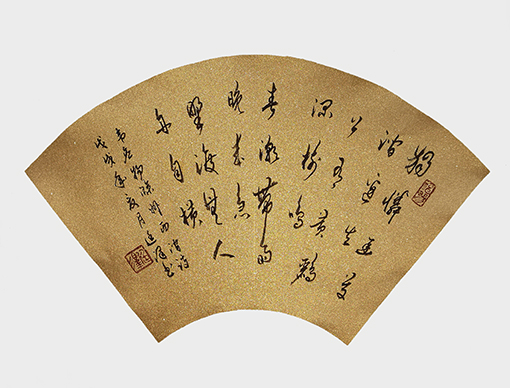 獨憐幽草
澗邊生
上有黃鸝
深樹鳴
春潮帶雨
晚來急
野渡無人
舟自橫
韋應物滁州西澗詩
戊戌年夏月
書